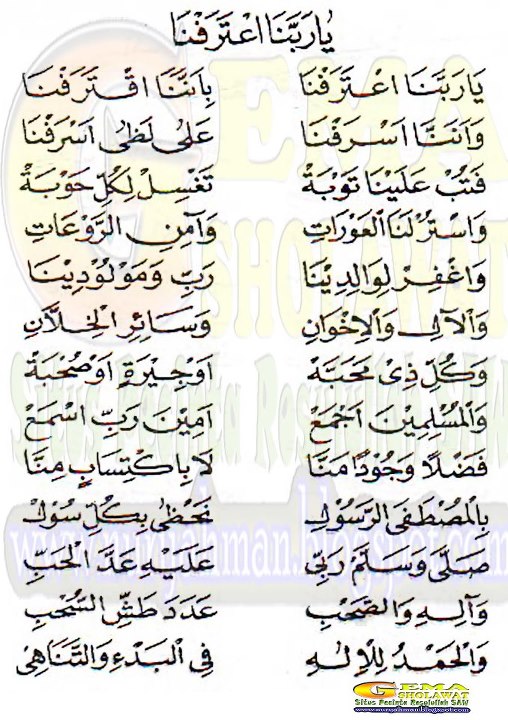 يَارَبَّنَا اعْتَرَفْنَا
يَارَبَّنَا اعْتَرَفْنَا بِاَنَّنَا اقْتَرَفْنَا
وَاَنَّنَا اَسْرَفْنَا عَلٰى لَظٰى اَسْرَفْنَا
فَتُبْ عَلَيْنَا تَوْبَةْ تَغْسِلْ لِكُلِّ حَوْبَةْ
وَاسْتُرْ لَنَا الْعَوْرَاتِ وَآمِنِ الرَّوْعَاتِ
وَاغْفِرْ لِوَالِدِيْنَا رَبِّ وَمَوْلُوْدِيْنَا
وَالْآلِ وَالْاِخْوَانِ وَسَائِرِ الْخِلَّانِ
وَكُلِّ ذِىْ مَحَبَّةْ اَوْ جِيْرَةٍ اَوْ صُحْبَةْ
وَالْمُسْلِمِيْنَ اَجْمَعْ اٰمِيْنَ رَبِّ اسْمَعْ
فَضْلًا وَجُوْدًا مَنَّا لَا بِاكْتِسَابٍ مِنَّا
بِالْمُصْطَفَى الرَّسُوْلِ نَحْظٰى بِكُلِّ سُوْلِ
صَلَّى وَسَلَّمْ رَبِّيْ عَلَيْهِ عَدَّ الْحَبِّ
وَآلِهِ وَالصَّحْبِ عَدَدَ طَشِّ السُّحْبِ
وَالْحَمْدُ لِلْاِلٰهِ فِى الْبَدْءِ وَالتَّنَاهِىْ
GEMA
SHOLAWAT
Situs Pecinta Rosulullah SAW
GEMA
SHOLAWAT
Situs Pecinta Rosulullah SAW